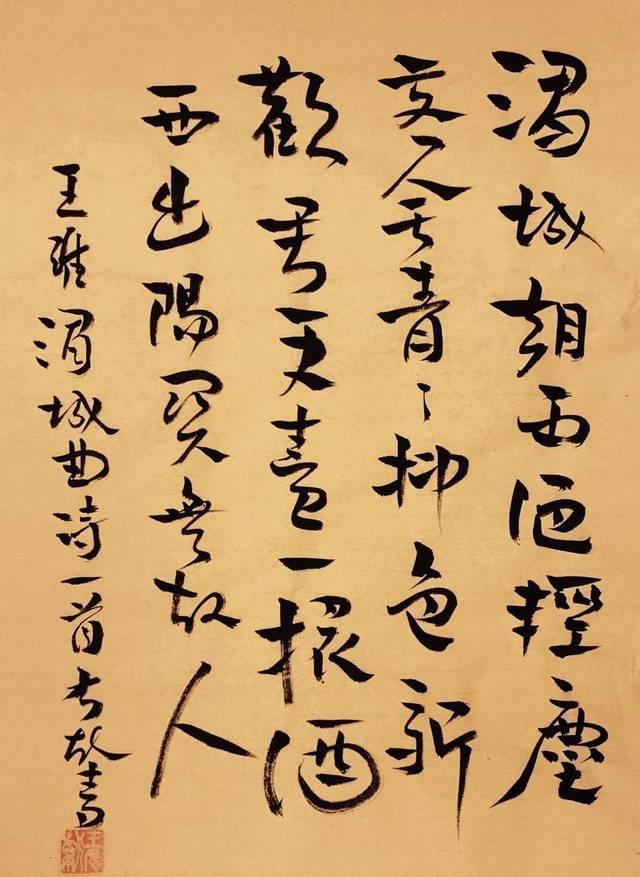 渭城朝雨浥輕塵
客舍青〻柳色新
勸君更盡一杯酒
西出陽關無故人
王維渭城曲詩一首書